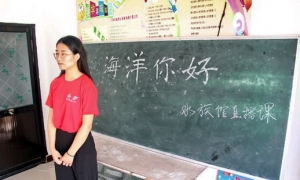 海洋你好
水族馆直播课